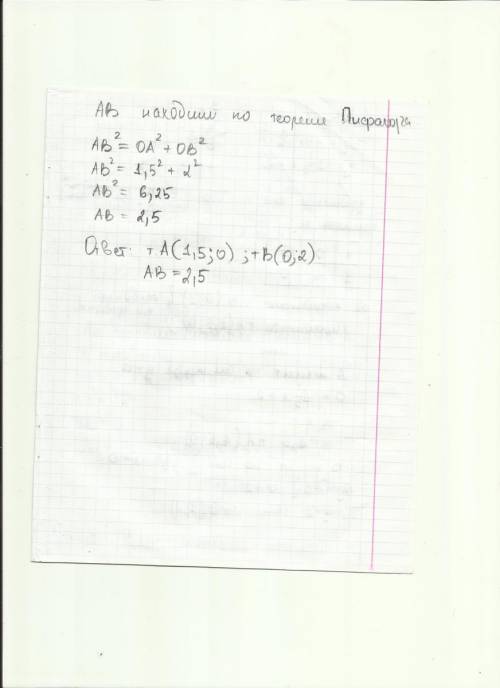 AB находим по теореме Пифагора
AB² = OA² + OB²
AB² = 1,5² + 2²
AB² = 6,25
AB = 2,5
Ответ: т A(1,5;0) ; т B(0;2)
AB = 2,5